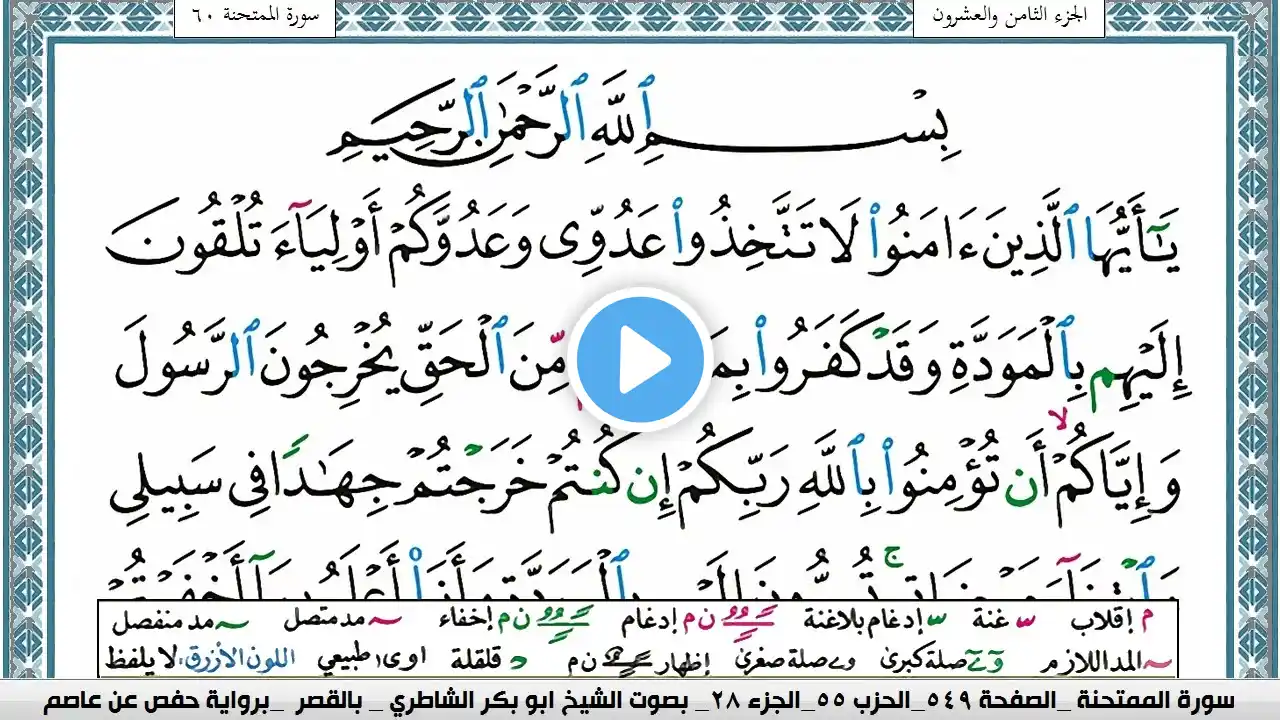 الجزء الثامن والعشرون
سورة الممتحنة ٦٠
بِسْمِ ٱللَّهِ ٱلرَّحْمَٰنِ ٱلرَّحِيمِ
يَٰٓأَيُّهَا ٱلَّذِينَ ءَامَنُوا۟ لَا تَتَّخِذُوا۟ عَدُوِّى وَعَدُوَّكُمْ أَوْلِيَآءَ تُلْقُونَ
إِلَيْهِم بِٱلْمَوَدَّةِ وَقَدْ كَفَرُوا۟ مِّنَ ٱلْحَقِّ يُخْرِجُونَ ٱلرَّسُولَ
وَإِيَّاكُمْ ۙ أَن تُؤْمِنُوا۟ بِٱللَّهِ رَبِّكُمْ إِن كُنتُمْ خَرَجْتُمْ جِهَٰدًا فِى سَبِيلِى
م إقلاب س غنة س إدغام بلا غنة ن م إدغام ن م إخفاء مد متصل مد منفصل
المد اللازم صلة كبرى صلة صغرى إظهار ن م قلقلة اوى طبيعي اللون الأزرق: لا يلفظ
سورة الممتحنة _الصفحة ٥٤٩_الحزب ٥٥_الجزء ٢٨_ بصوت الشيخ ابو بكر الشاطري _ بالقصر _برواية حفص عن عاصم